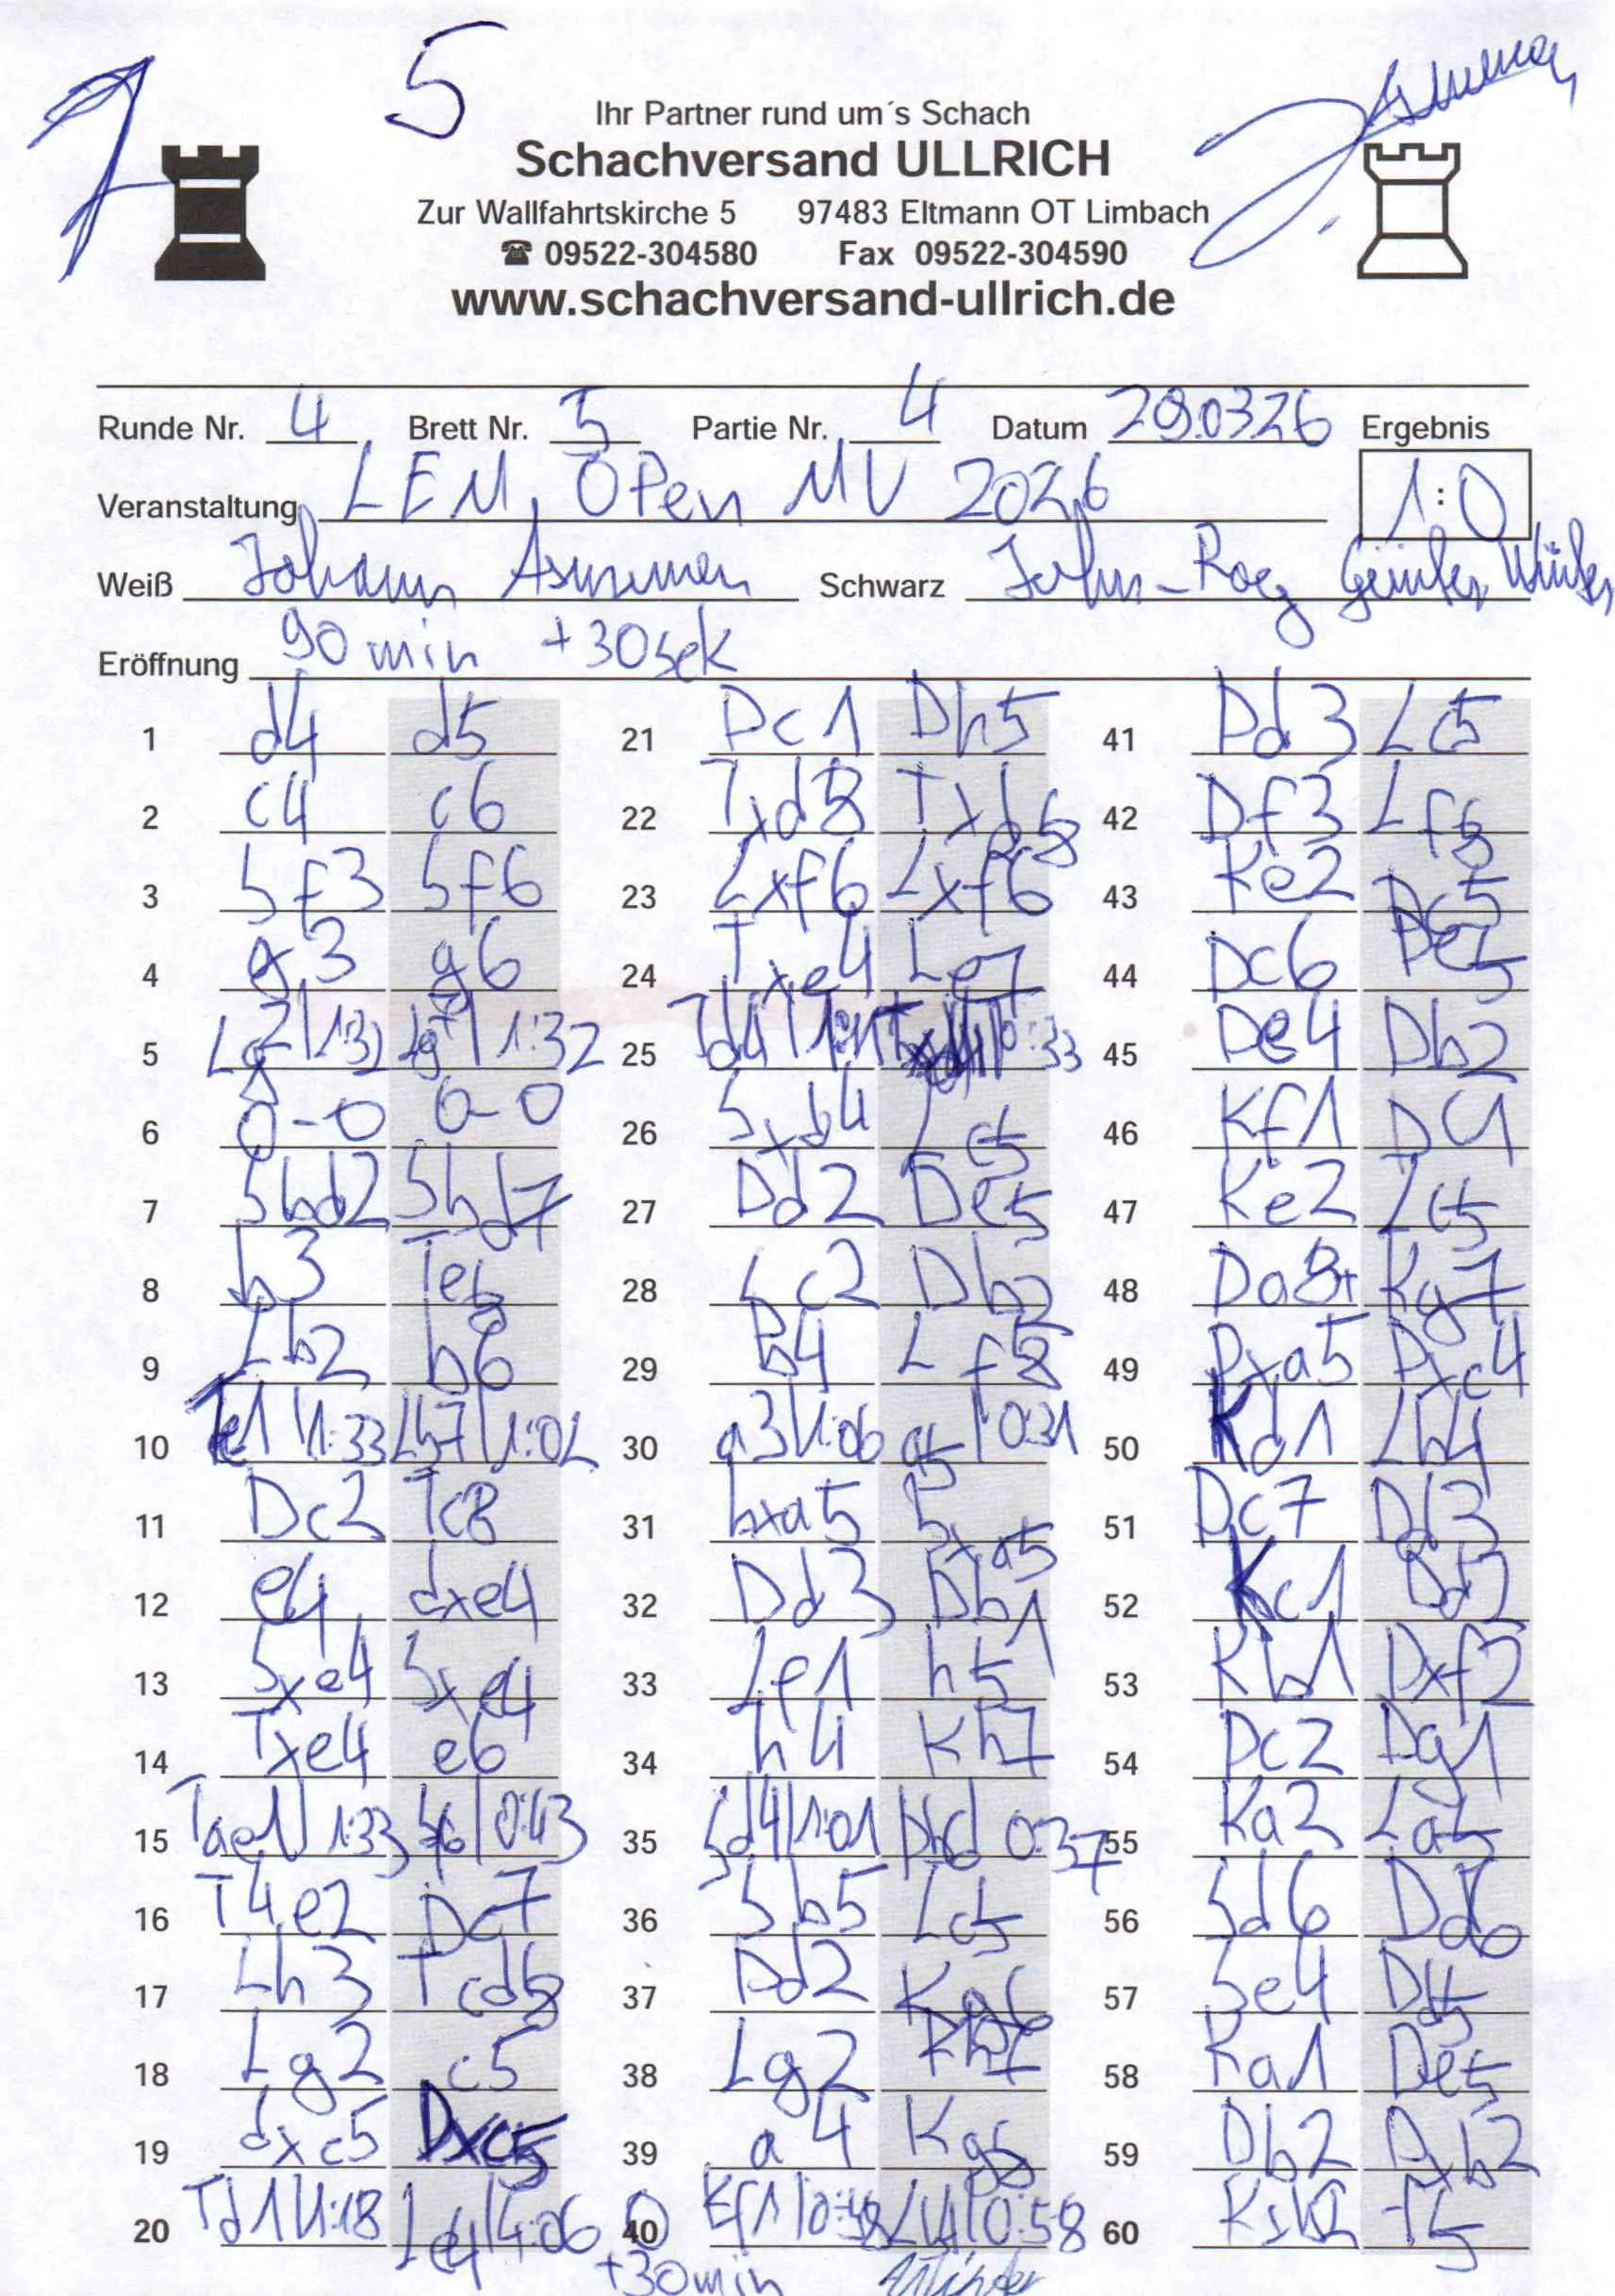 5
Ihr Partner rund um´s Schach
Schachversand ULLRICH
Zur Wallfahrtskirche 5 97483 Eltmann OT Limbach
☎ 09522-304580 Fax 09522-304590
www.schachversand-ullrich.de
Runde Nr. 4 Brett Nr. 5 Partie Nr. 4 Datum 29.03.26 Ergebnis
Veranstaltung LEM, OPen MV 2026 1:0
Weiß Johann Schwarz John-
Eröffnung 90 min +30sek
1 d4 d5 21 Dc1 Dh5 41 Dd3 Lc5
2 c4 c6 22 Txd8 Txd8 42 Df3 Lf8
3 Sf3 Sf6 23 Lxf6 Lxf6 43 Ke2 Dc5
4 g3 g6 24 Txe4 Le7 44 Dc6 De5
5 Lg2 1:32 Lg7 1:32 25 Td4 0:33 45 De4 Db2
6 0-0 0-0 26 Sxd4 Lc5 46 Kf1 Dc1
7 Sbd2 Sbd7 27 Dd2 De5 47 Ke2 Lc5
8 b3 Te8 28 Sc2 Db2 48 Da8+ Kg7
9 Lb2 b6 29 b4 Lf8 49 Dxa5 Dxc4
10 Te1 1:33 Lb7 1:02 30 a3 1:06 a5 0:31 50 Kd1 Lb4
11 Dc2 Tc8 31 bxa5 bxa5 51 Dc7 Dd3
12 e4 dxe4 32 Dd3 Db1 52 Kc1 Dd2
13 Sxe4 Sxe4 33 Se1 h5 53 Kb1 Dxf2
14 Txe4 e6 34 h4 Kh7 54 Dc2 Dg1
15 Tae1 1:33 Sf6 0:43 35 1:01 0:37 55 Ka2 La5
16 T4e2 Dc7 36 Sb5 Lc5 56 Sd6 Dd4
17 Lh3 Tcd8 37 Dd2 Kg8 57 Se4 Dd5
18 Lg2 c5 38 Lg2 Kh7 58 Ka1 De5
19 dxc5 Dxc5 39 a4 Kg8 59 Db2 Dxb2
20 Td1 1:18 Le4 40 Kf1 0:58 60 Kxb2 f5
+30min